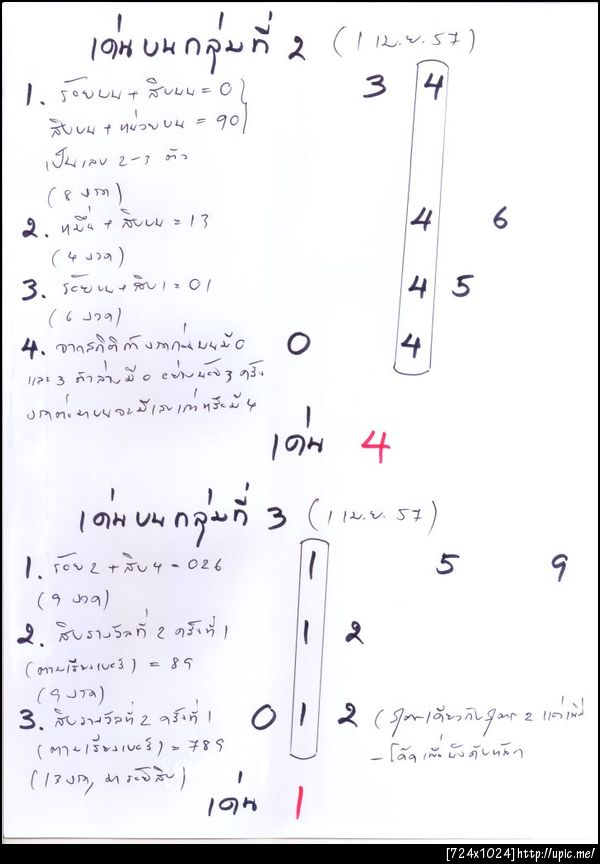 เด่นบนกลุ่มที่ 2 (1 เม.ย. 57)
1. ร้อยบน + สิบบน = 0 3 4
สิบบน + หน่วยบน = 90
เป็นเลข 2-3 ตัว
(8 งวด)
2. หมื่น + สิบบน = 13 4 6
(4 งวด)
3. ร้อยบน + สิบ 1 = 01 4 5
(6 งวด)
4. จากสถิติถ้างวดก่อนบนมี 0 0 4
และ 3 ตัวล่างมี 0 อย่างน้อย 3 ครั้ง
งวดต่อมาบนจะมีเลข มี 4
เด่น 4
เด่นบนกลุ่มที่ 3 (1 เม.ย. 57)
1. ร้อย 2 + สิบ 4 = 026 1 5 9
(9 งวด)
2. สิบรางวัลที่ 2 ครั้งที่ 1 1 2
(ตามเรียงเบอร์) = 89
(9 งวด)
3. สิบรางวัลที่ 2 ครั้งที่ 1 0 1 2 (สูตรเดียวกับสูตร 2 แต่เพิ่ม
(ตามเรียงเบอร์) = 789
(13 งวด, สิบ)
เด่น 1
[724x1024]http://upic.me/